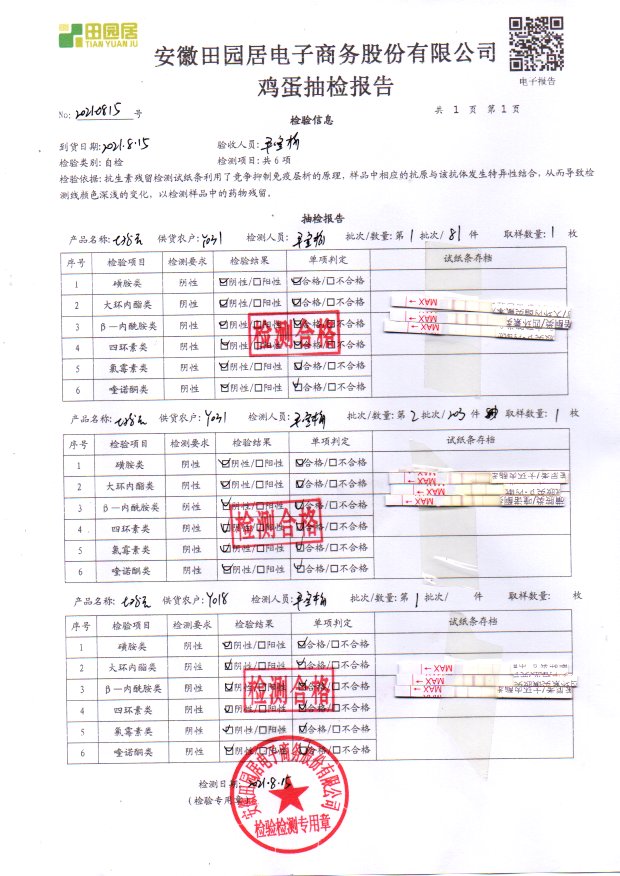 田园居
TIAN YUAN JU
安徽田园居电子商务股份有限公司
鸡蛋抽检报告
电子报告
No: 20210815 号
共 1 页 第 1 页
检验信息
到货日期: 2021.8.15 验收人员:
检验类别: 自检 检测项目: 共 6 项
检验依据: 抗生素残留检测试纸条利用了竞争抑制免疫层析的原理, 样品中相应的抗原与该抗体发生特异性结合, 从而导致检
测线颜色深浅的变化, 以检测样品中的药物残留。
抽检报告
产品名称: 供货农户: Y031 检测人员: 批次/数量: 第 1 批次/ 81 件 取样数量: 1 枚
序号 检验项目 检测要求 检验结果 单项判定 试纸条存档
1 磺胺类 阴性 ☑阴性/□阳性 ☑合格/□不合格
2 大环内酯类 阴性 ☑阴性/□阳性 ☑合格/□不合格
3 β—内酰胺类 阴性 ☑阴性/□阳性 ☑合格/□不合格
4 四环素类 阴性 ☑阴性/□阳性 ☑合格/□不合格
5 氯霉素类 阴性 ☑阴性/□阳性 ☑合格/□不合格
6 喹诺酮类 阴性 ☑阴性/□阳性 ☑合格/□不合格
检测合格
MAX
MAX
MAX
产品名称: 供货农户: Y031 检测人员: 批次/数量: 第 2 批次/ 203 件 取样数量: 1 枚
序号 检验项目 检测要求 检验结果 单项判定 试纸条存档
1 磺胺类 阴性 ☑阴性/□阳性 ☑合格/□不合格
2 大环内酯类 阴性 ☑阴性/□阳性 ☑合格/□不合格
3 β—内酰胺类 阴性 ☑阴性/□阳性 ☑合格/□不合格
4 四环素类 阴性 ☑阴性/□阳性 ☑合格/□不合格
5 氯霉素类 阴性 ☑阴性/□阳性 ☑合格/□不合格
6 喹诺酮类 阴性 ☑阴性/□阳性 ☑合格/□不合格
检测合格
MAX
MAX
MAX
产品名称: 供货农户: Y018 检测人员: 批次/数量: 第 1 批次/ 件 取样数量: 枚
序号 检验项目 检测要求 检验结果 单项判定 试纸条存档
1 磺胺类 阴性 ☑阴性/□阳性 ☑合格/□不合格
2 大环内酯类 阴性 ☑阴性/□阳性 ☑合格/□不合格
3 β—内酰胺类 阴性 ☑阴性/□阳性 ☑合格/□不合格
4 四环素类 阴性 ☑阴性/□阳性 ☑合格/□不合格
5 氯霉素类 阴性 ☑阴性/□阳性 ☑合格/□不合格
6 喹诺酮类 阴性 ☑阴性/□阳性 ☑合格/□不合格
检测合格
MAX
MAX
MAX
检测日期: 2021.8.15
(检验专用章)
安徽田园居电子商务股份有限公司
检验检测专用章